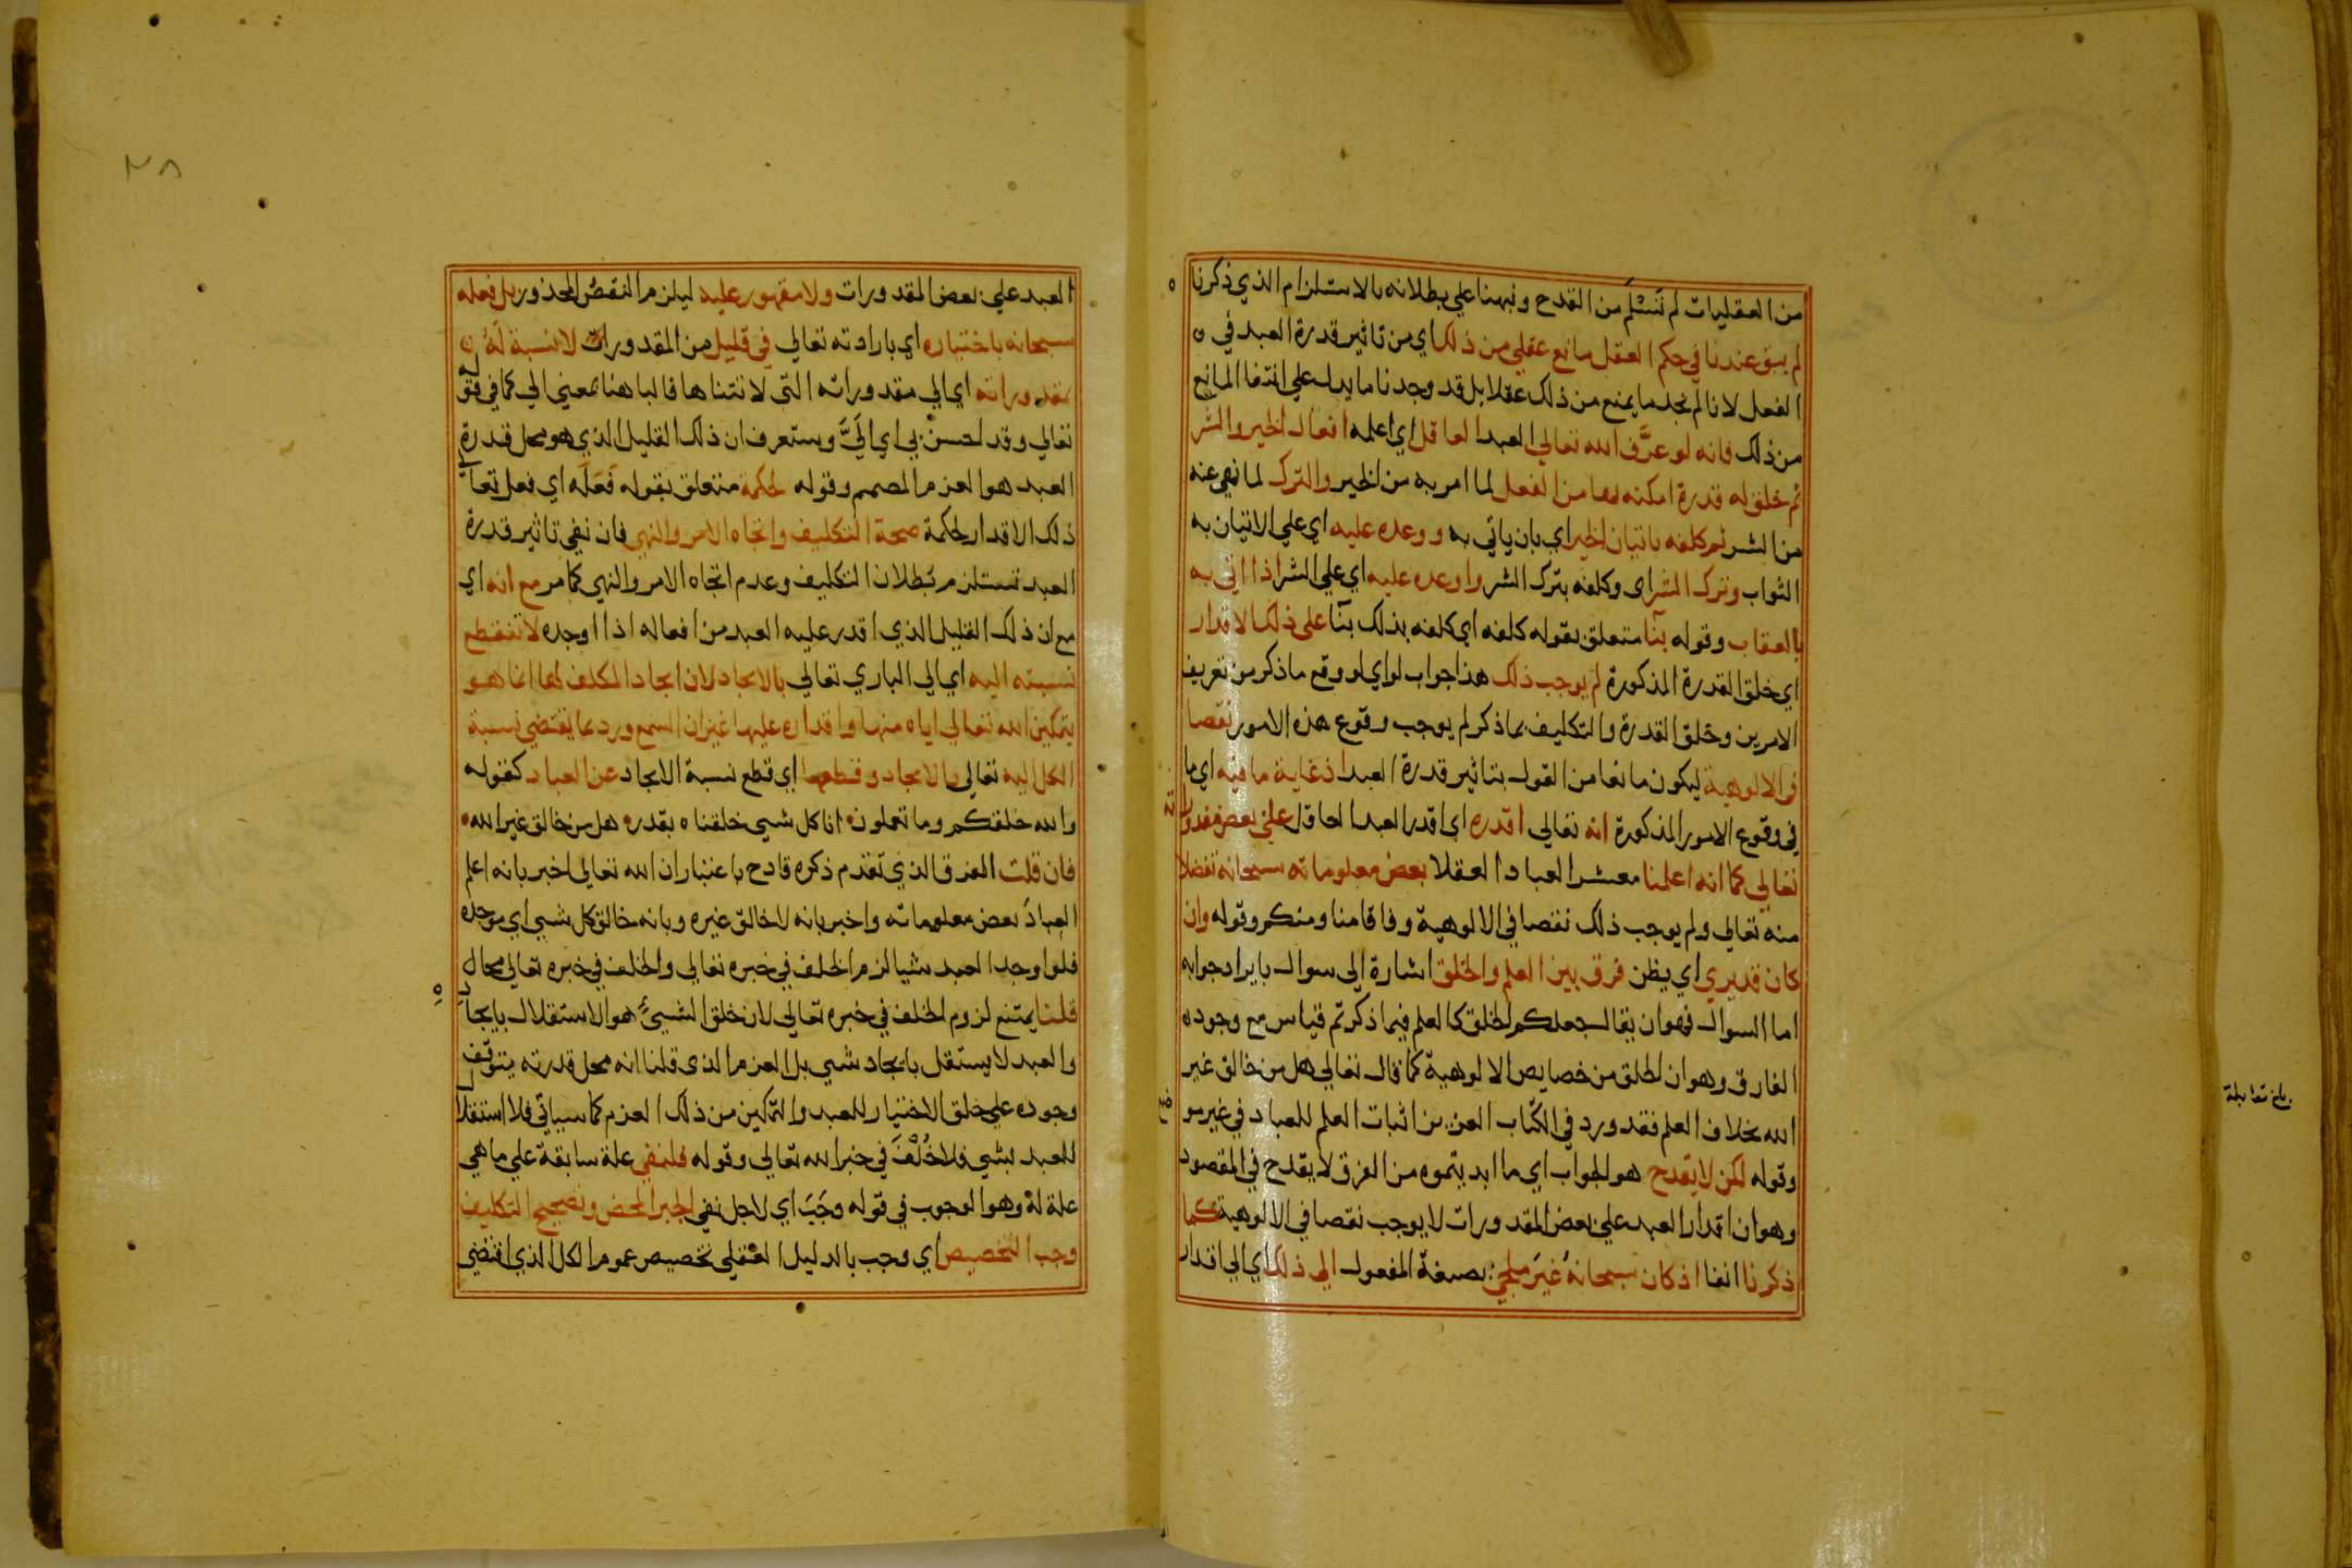 من العقليات لم نَسْلَم من القدح ونبهنا علي بطلانه بالاستلزام الذي ذكرنا
لم يبق عندنا في حكم العقل مانع عقلي من ذلك اي من تاثير قدرة العبد في
الفعل لانا لم نجد ما يمنع من ذلك عقلا بل قد وجدنا ما يدل علي انتفا المانع
من ذلك فانه لو عرَّف الله تعالي العبد العاقل اي اعلمه افعال الخير والشر
ثم خلق له قدرة امكنه بها من الفعل لما امر به من الخير والترك لما نهي عنه
من الشر ثم كلفه باتيان الخير اي بان ياتي به ووعده عليه اي علي الاتيان به
الثواب وترك الشر اي وكلفه بترك الشر واوعده عليه اي علي الشر اذا اتي به
بالعقاب وقوله بنآ متعلق بقوله كلفه اي كلفه بذلك بنآ علي ذلك الاقدار
اي خلق القدرة المذكورة لم يوجب ذلك هذا جواب لو اي لو وقع ما ذكر من تعريف
الامرين وخلق القدرة والتكليف بما ذكر لم يوجب وقوع هذه الامور نقصا
في الالوهية ليكون مانعا من القول بتاثير قدرة العبد اذ غاية ما فيه اي ما
في وقوع الامور المذكورة انه تعالي اقدره اي اقدر العبد العاقل علي بعض مقدوراته
تعالي كما انه اعلمنا معشر العباد العقلا بعض معلوماته سبحانه تفضلا
منه تعالي ولم يوجب ذلك نقصا في الالوهية وفاقا منا ومنكم وقوله وان
كان قد يري اي يظن فرق بين العلم والخلق اشارة الي سوال بايراد جوابه
اما السوال فهو ان يقال جعلكم الخلق كالعلم فيما ذكرتم قياس مع وجود
الفارق وهو ان الخلق من خصايص الالوهية كما قال تعالي هل من خالق غير
الله بخلاف العلم فقد ورد في الكتاب العزيز اثبات العلم للعباد في غير موضع
وقوله لكن لا يقدح هو الجواب اي ما ابديتموه من الفرق لا يقدح في المقصود
وهو ان اقدار العبد علي بعض المقدورات لا يوجب نقصا في الالوهية كما
ذكرنا انفا اذ كان سبحانهُ غيرَ ملجئ بصيغة المفعول الي ذلك اي الي اقدار
بلغ مقابلة
٢٨
العبد علي بعض المقدورات ولا مقهور عليه ليلزم النقصُ المحذور بل فعله
سبحانه باختياره اي بارادته تعالي في قليل من المقدورات لا نسبة لهُ
بمقدوراته اي الي مقدوراته التي لا تتناها فالبا هنا بمعني الي كما في قوله
تعالي وقد احسن بي اي اليَّ وستعرف ان ذلك القليل الذي هو محل قدرة
العبد هو العزم المصمم وقوله لحكمة متعلق بقوله فَعَلَه اي فعل تعالي
ذلك الاقدار لحكمة صحة التكليف واتجاه الامر والنهي فان نفي تاثير قدرة
العبد تستلزم بُطلان التكليف وعدم اتجاه الامر والنهي كما مر مع انه اي
مع ان ذلك القليل الذي اقدر عليه العبد من افعاله اذا اوجده لا تنقطع
نسبته اليه اي الي الباري تعالي بالايجاد لان ايجاد المكلف لها انما هو
بتمكين الله تعالي اياه منها واقداره عليها غير ان السمع ورد بما يقتضي نسبة
الكل اليه تعالي بالايجاد وقطعها اي قطع نسبة الايجاد عن العباد كقوله
والله خلقكم وما تعملون انا كل شيي خلقناه بقدر هل من خالق غير الله
فان قلت الفرق الذي تقدم ذكره قادح باعتبار ان الله تعالي اخبر بانه اعلم
العبادَ بعض معلوماته واخبر بانه لا خالق غيره وبانه خالق كل شيي اي موجده
فلو اوجد العبد شيا لزم الخلف في خبره تعالي والخلف في خبره تعالي محال
قلنا يمتنع لزوم الخلف في خبره تعالي لان خلق الشيئ هو الاستقلال بايجاده
والعبد لا يستقل بايجاد شيي بل العزم الذي قلنا انه محل قدرته يتوقف
وجوده علي خلق الاختيار للعبد والتمكين من ذلك العزم كما سياتي فلا استقلال
للعبد بشيي فلا خُلْفَ في خبر الله تعالي وقوله فلنفي علة سابقة علي ما هي
علة لهُ وهو الوجوب في قوله وجَبَ اي لاجل نفي الجبر المحض وتصحيح التكليف
وجب التخصيص اي وجب بالدليل العقلي تخصيص عموم الكل الذي اقتضي